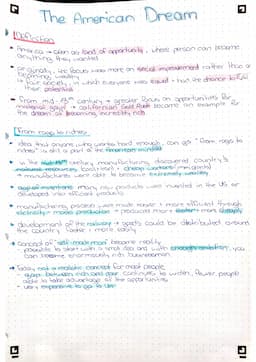 The American Dream
Definition
America → often as land of opportunity, where person can become
anything they wanted
originally, the focus was more on social improvement rather than on
becoming wealthy
→ fair society, in which everyone was equal + had the chance to fulfil
their potential
From mid-19th century → greater focus on opportunities for
material gain → californian Gold Rush became an example for
the dream of becoming incredibly rich
From rags to riches
idea that anyone, using works hard enough, can go "from rags to
riches" is still a part of the American mindset
in the 19th century manufacturing, discovered country's
natural resources
→ manufacturers were able to become extremely wealthy
age of inventions: many new products were invented in the US or
developed into efficient products
manufacturing process was made easier + more efficient through
electricity → mass production → produced more faster + more cheaply
development of the railway → goods could be distributed around
the country faster + more easily
concept of "self-made man" became reality
possible to start with a small idea and with enough ambition, you
can become enormously rich businessman
Today not a realistic concept for most people
gap between rich and poor continues to widen, fewer people
able to take advantage of the opportunities
very expensive to go to Uni